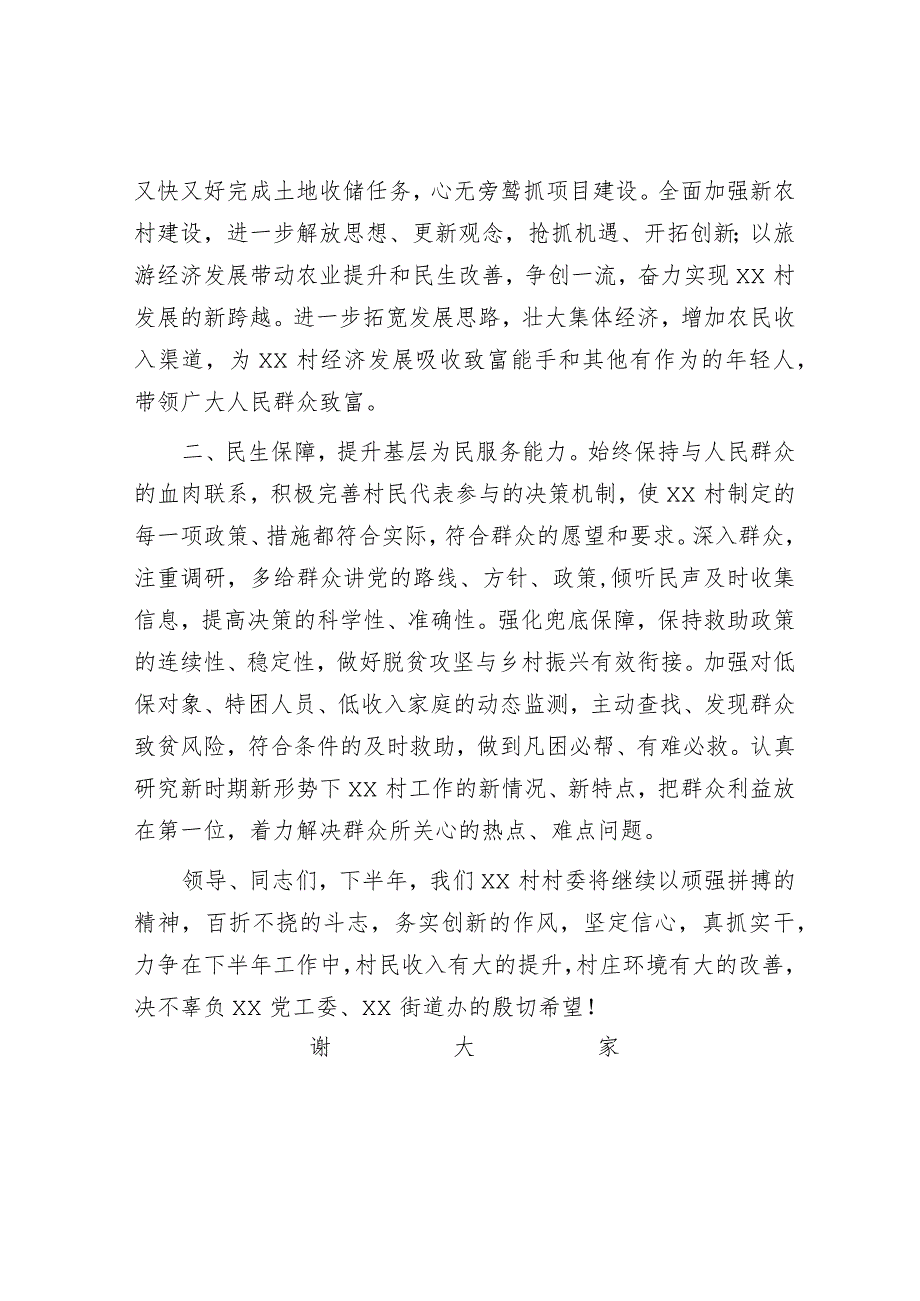 又快又好完成土地收储任务，心无旁鹜抓项目建设。全面加强新农
村建设，进一步解放思想、更新观念，抢抓机遇、开拓创新；以旅
游经济发展带动农业提升和民生改善，争创一流，奋力实现 XX 村
发展的新跨越。进一步拓宽发展思路，壮大集体经济，增加农民收
入渠道，为 XX 村经济发展吸收致富能手和其他有作为的年轻人，
带领广大人民群众致富。
二、民生保障，提升基层为民服务能力。始终保持与人民群众
的血肉联系，积极完善村民代表参与的决策机制，使 XX 村制定的
每一项政策、措施都符合实际，符合群众的愿望和要求。深入群众，
注重调研，多给群众讲党的路线、方针、政策,倾听民声及时收集
信息，提高决策的科学性、准确性。强化兜底保障，保持救助政策
的连续性、稳定性，做好脱贫攻坚与乡村振兴有效衔接。加强对低
保对象、特困人员、低收入家庭的动态监测，主动查找、发现群众
致贫风险，符合条件的及时救助，做到凡困必帮、有难必救。认真
研究新时期新形势下 XX 村工作的新情况、新特点，把群众利益放
在第一位，着力解决群众所关心的热点、难点问题。
领导、同志们，下半年，我们 XX 村村委将继续以顽强拼搏的
精神，百折不挠的斗志，务实创新的作风，坚定信心，真抓实干，
力争在下半年工作中，村民收入有大的提升，村庄环境有大的改善，
决不辜负 XX 党工委、XX 街道办的殷切希望！
谢 大 家